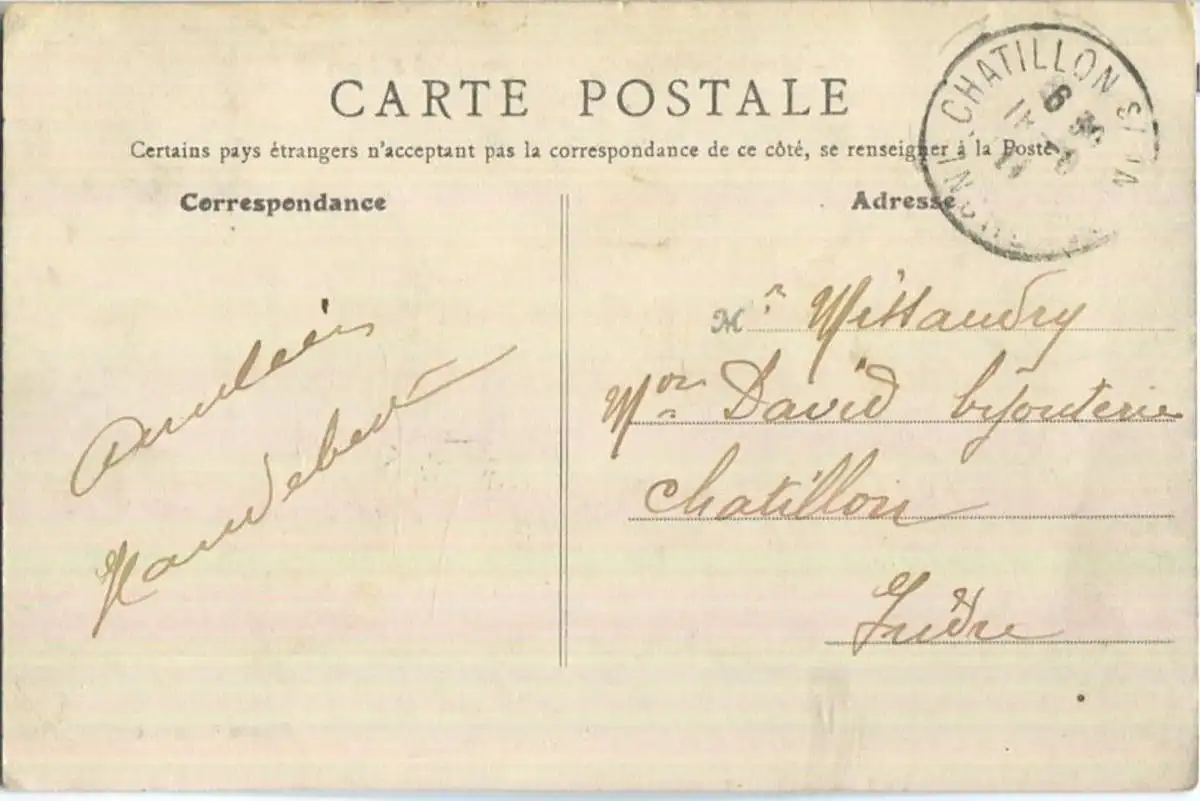 CARTE POSTALE
Certains pays étrangers n'acceptant pas la correspondance de ce côté, se renseigner à la Poste
Correspondance
Adresse
CHATILLON S/ IN
M r Mittaudry
Mon David bijouterie
Chatillon
Indre